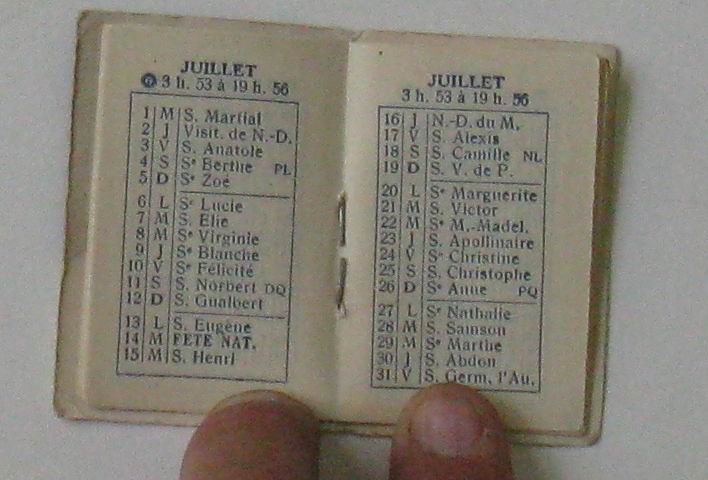 JUILLET
3 h. 53 à 19 h. 56
1 M S. Martial
2 J Visit. de N.-D.
3 V S. Anatole
4 S Sᵉ Berthe PL
5 D Sᵉ Zoé
6 L Sᵉ Lucie
7 M S. Elie
8 M Sᵉ Virginie
9 J Sᵉ Blanche
10 V Sᵉ Félicité
11 S S. Norbert DQ
12 D S. Gualbert
13 L S. Eugène
14 M FETE NAT.
15 M S. Henri
JUILLET
3 h. 53 à 19 h. 56
16 J N.-D. du M.
17 V S. Alexis
18 S S. Camille NL
19 D S. V. de P.
20 L Sᵉ Marguerite
21 M S. Victor
22 M Sᵉ M.-Madel.
23 J S. Apollinaire
24 V Sᵉ Christine
25 S S. Christophe
26 D Sᵉ Anne PQ
27 L Sᵉ Nathalie
28 M S. Samson
29 M Sᵉ Marthe
30 J S. Abdon
31 V S. Germ. l'Au.